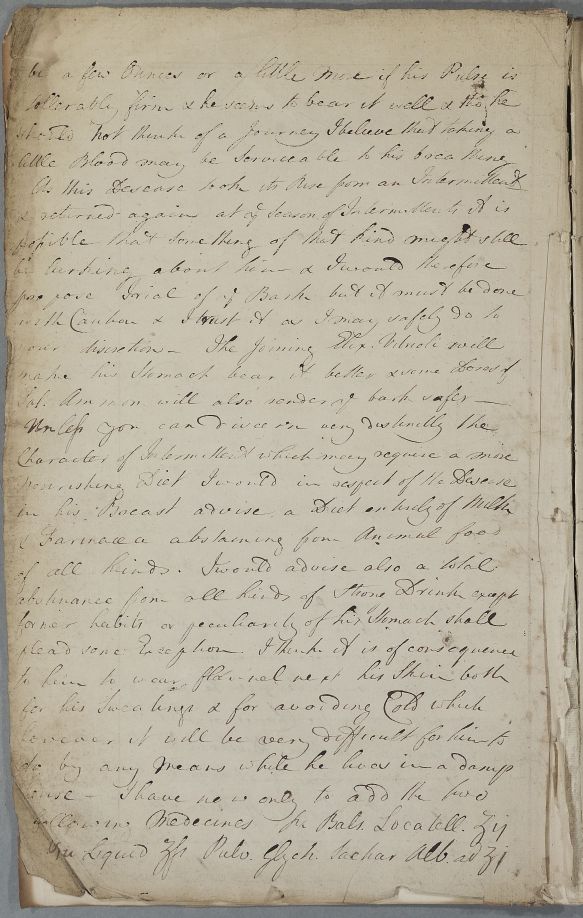 be a few Ounces or a little more if his Pulse is
tollerably firm & he seems to bear it well & tho he
should not think of a Journey I believe that taking a
little Blood may be Serviceable to his breathing
As this Desease took its Rise from an Intermittent
& returned again at ye Season of Intermittents it is
possible that something of that kind might still
be lurking about him & I would therefore
propose Trial of ye Bark but it must be done
with Caution & I trust it as I may safely do to
your discretion – The Joining Elix. Vitrioli will
make his Stomach bear it better & some Doses of
Sal. Ammon will also render ye bark safer –
Unless you can discern very distinctly the
Character of Intermittent which may require a more
nourishing Diet I would in respect of the Desease
in his Breast advise a Diet entirely of Milk
& Farinacea abstaining from Animal food
of all kinds. I would advise also a total
abstinance from all kinds of Strong Drink except
former habits or peculiarity of his Stomach shall
plead some Exception I think it is of consequence
to him to wear flannel next his Skin both
for his Sweatings & for avoiding Cold which
however it will be very difficult for him to
do by any means while he lives in a damp
house – I have now only to add the two
following Medecines the Bals. Locatell. ʒij
Liquid ʒſs Pulv. Glych. Sachar Alb. ad ʒj